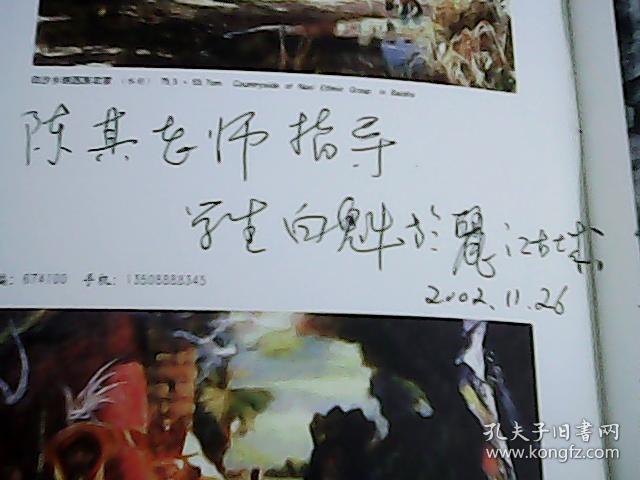 (水彩) 75.5 × 53.7cm Countryside of Naxi Ethnic Group in Baisha
陈其老师 指导
学生 白魁 於麗江
2002.11.26
: 674100 手机: 13508888345
孔夫子旧书网
www.kongfz.com